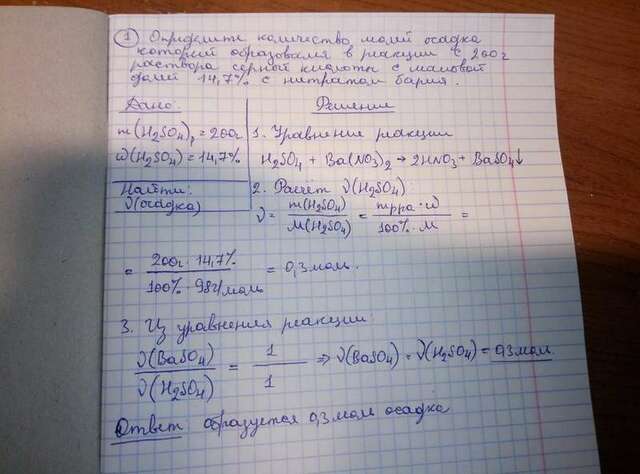 ① Определите количество молей осадка
который образовался в реакции с 200г
раствора серной кислоты с массовой
долей 14,7% с нитратом бария.
Дано:
m(H₂SO₄)р = 200г
ω(H₂SO₄) = 14,7%
Найти:
ν(осадка)
Решение
1. Уравнение реакции
H₂SO₄ + Ba(NO₃)₂ → 2HNO₃ + BaSO₄↓
2. Расчёт ν(H₂SO₄):
ν = m(H₂SO₄) / M(H₂SO₄) = mрра · ω / 100% · M =
= 200г · 14,7% / 100% · 98г/моль = 0,3 моль.
3. Из уравнения реакции:
ν(BaSO₄) / ν(H₂SO₄) = 1 / 1 ⇒ ν(BaSO₄) = ν(H₂SO₄) = 0,3 моль.
Ответ образуется 0,3 моль осадка